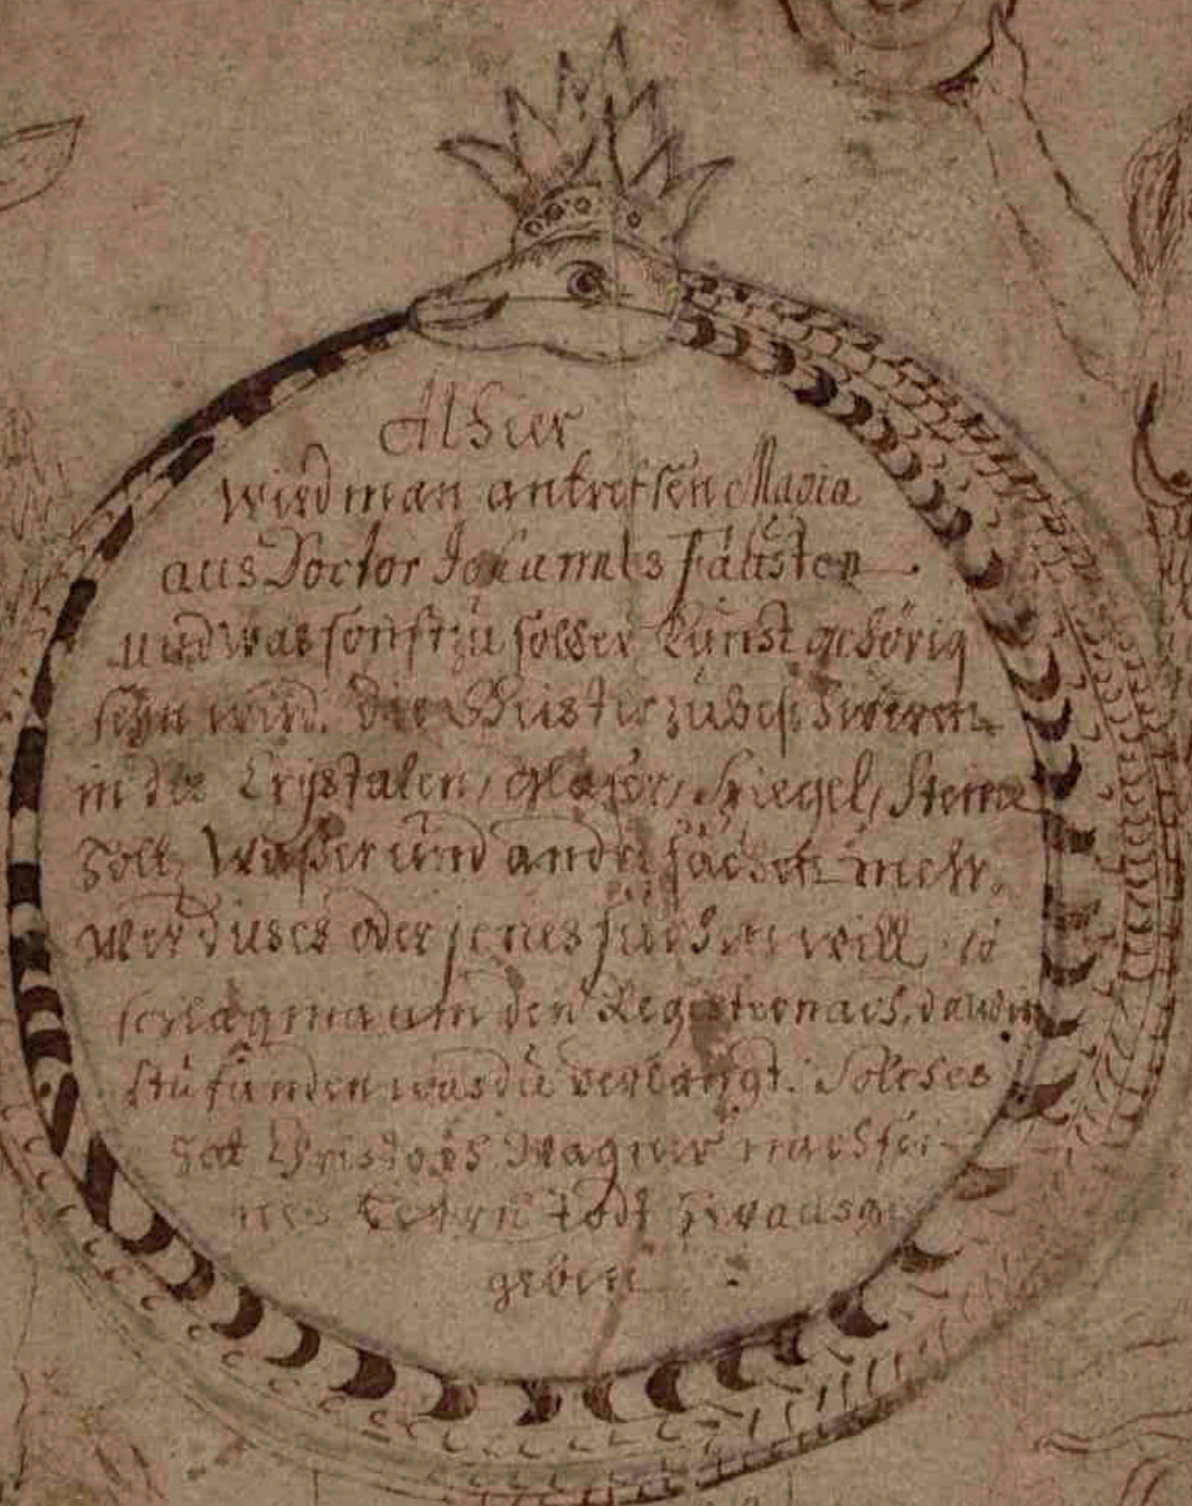 Alhier
wird man antreffen Magia
aus Doctor Johannes Faůsten
und was sonst zů solcher Kůnst gehörig
seÿn wird. die Geister zů beschweren
in die Crÿstalen, Gläser, Spiegel, Steine
Holtz Waßer ůnd andre sachen mehr.
wer dieses oder jenes suchen will so
schlag man um den Register nach, da
du fůnden was dů verlangt. Solches
hat Christoph Wagner nach sei-
nes todt heraus ge
geben